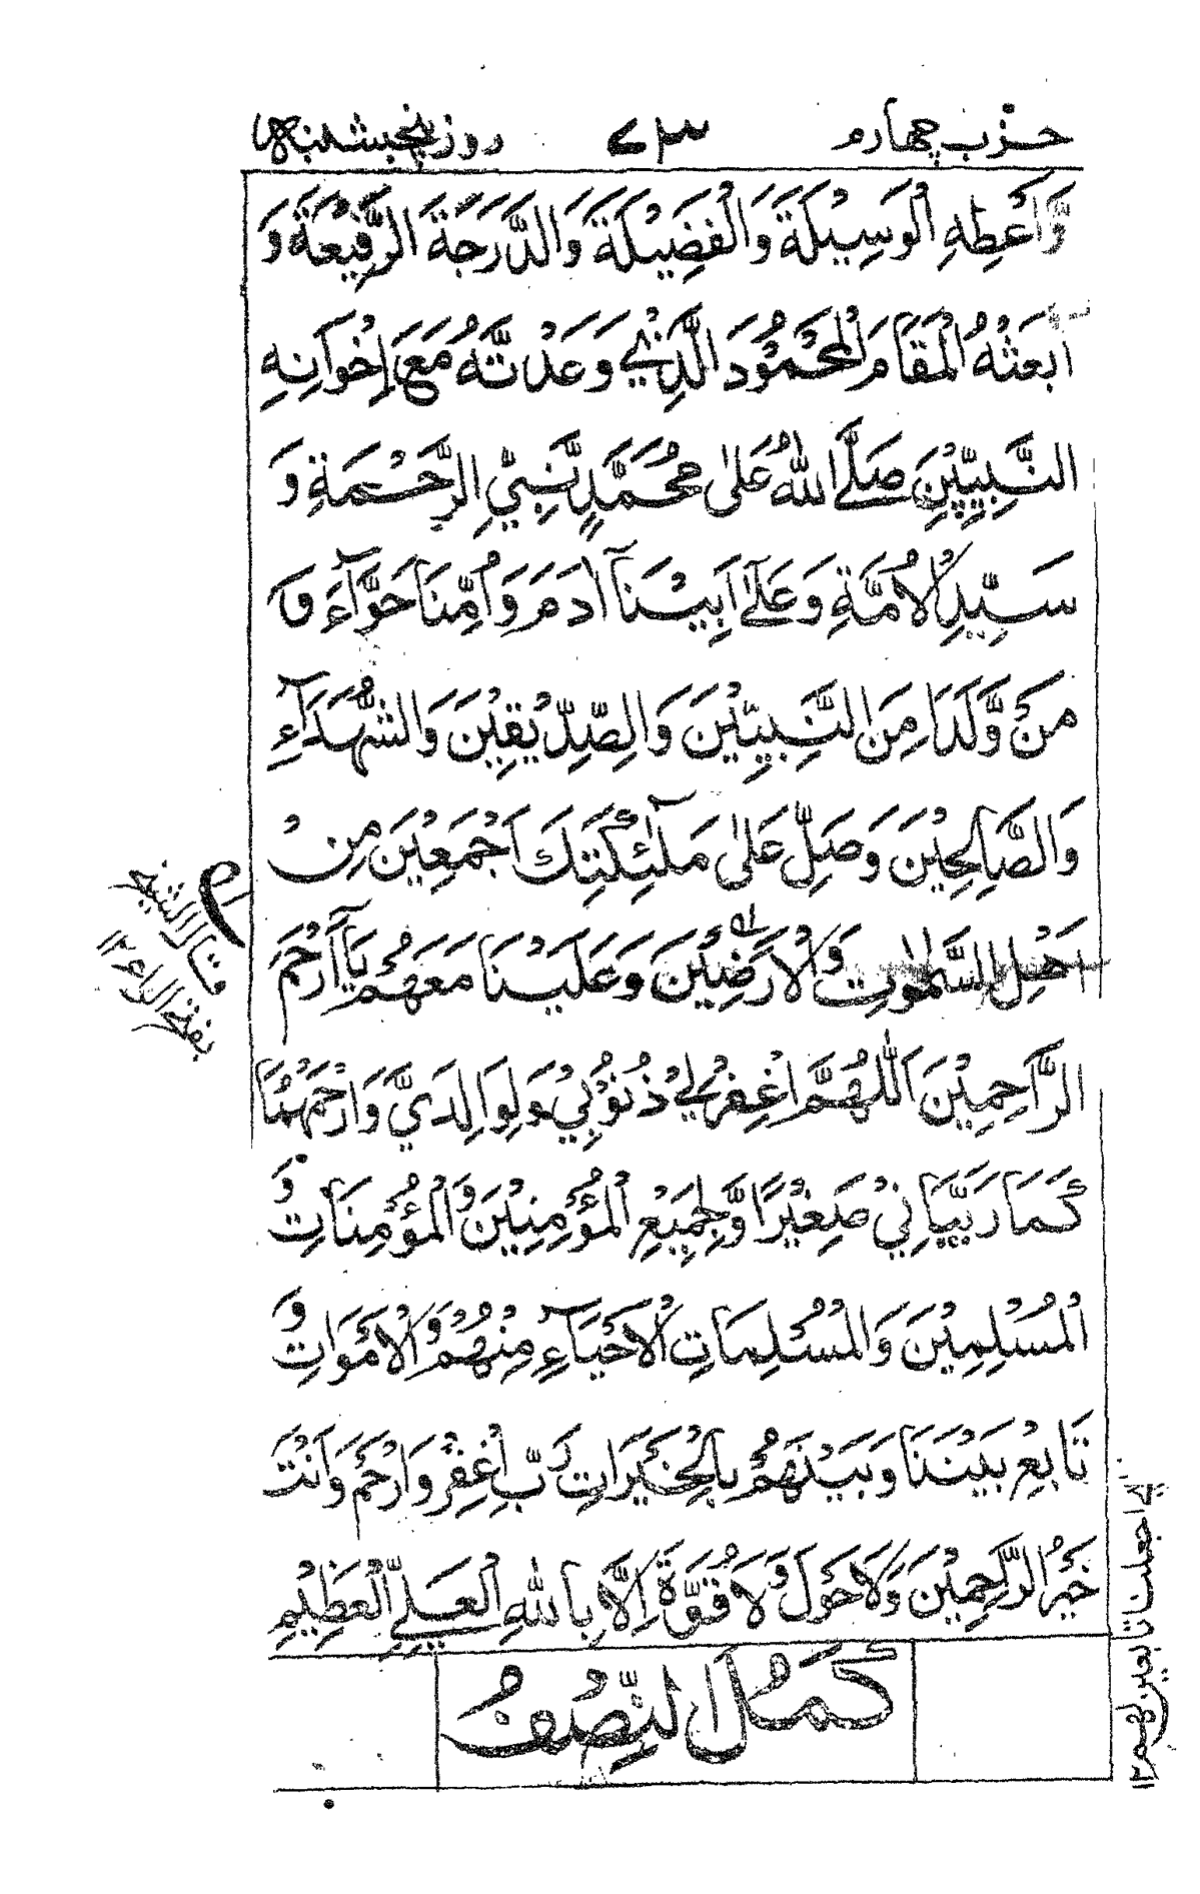 حزب چهارم ۷۳ روز پنجشنبه
وَّاَعْطِهِ الْوَسِيْلَةَ وَالْفَضِيْلَةَ وَالدَّرَجَةَ الرَّفِيْعَةَ وَ
ابْعَثْهُ الْمَقَامَ الْمَحْمُوْدَ الَّذِيْ وَعَدْتَّهُ مَعَ اِخْوَانِهِ
النَّبِيِّيْنَ صَلَّى اللّٰهُ عَلٰى مُحَمَّدٍ نَّبِيِّ الرَّحْمَةِ وَ
سَيِّدِ الْاُمَّةِ وَعَلٰٓى اَبِيْنَآ اٰدَمَ وَاُمِّنَا حَوَّآءَ وَ
مَنْ وَّلَدَا مِنَ النَّبِيِّيْنَ وَالصِّدِّيْقِيْنَ وَالشُّهَدَآءِ
وَالصَّالِحِيْنَ وَصَلِّ عَلٰى مَلٰٓئِكَتِكَ اَجْمَعِيْنَ مِنْ
اَهْلِ السَّمٰوٰتِ وَالْاَرَضِيْنَ وَعَلَيْنَا مَعَهُمْ يَآ اَرْحَمَ
الرَّاحِمِيْنَ اَللّٰهُمَّ اغْفِرْ لِيْ ذُنُوْبِيْ وَلِوَالِدَيَّ وَارْحَمْهُمَا
كَمَا رَبَّيَانِيْ صَغِيْرًا وَّلِجَمِيْعِ الْمُؤْمِنِيْنَ وَالْمُؤْمِنَاتِ وَ
الْمُسْلِمِيْنَ وَالْمُسْلِمَاتِ الْاَحْيَآءِ مِنْهُمْ وَالْاَمْوَاتِ وَ
تَابِعْ بَيْنَنَا وَبَيْنَهُمْ بِالْخَيْرَاتِ رَبِّ اغْفِرْ وَارْحَمْ وَاَنْتَ
خَيْرُ الرَّاحِمِيْنَ وَلَا حَوْلَ وَلَا قُوَّةَ اِلَّا بِاللّٰهِ الْعَلِيِّ الْعَظِيْمِ
كَمُلَ النِّصْفُ
قال الشيخ
بفتح الراء ۱۲
اے اجعلنا تابعين لهم ۱۲